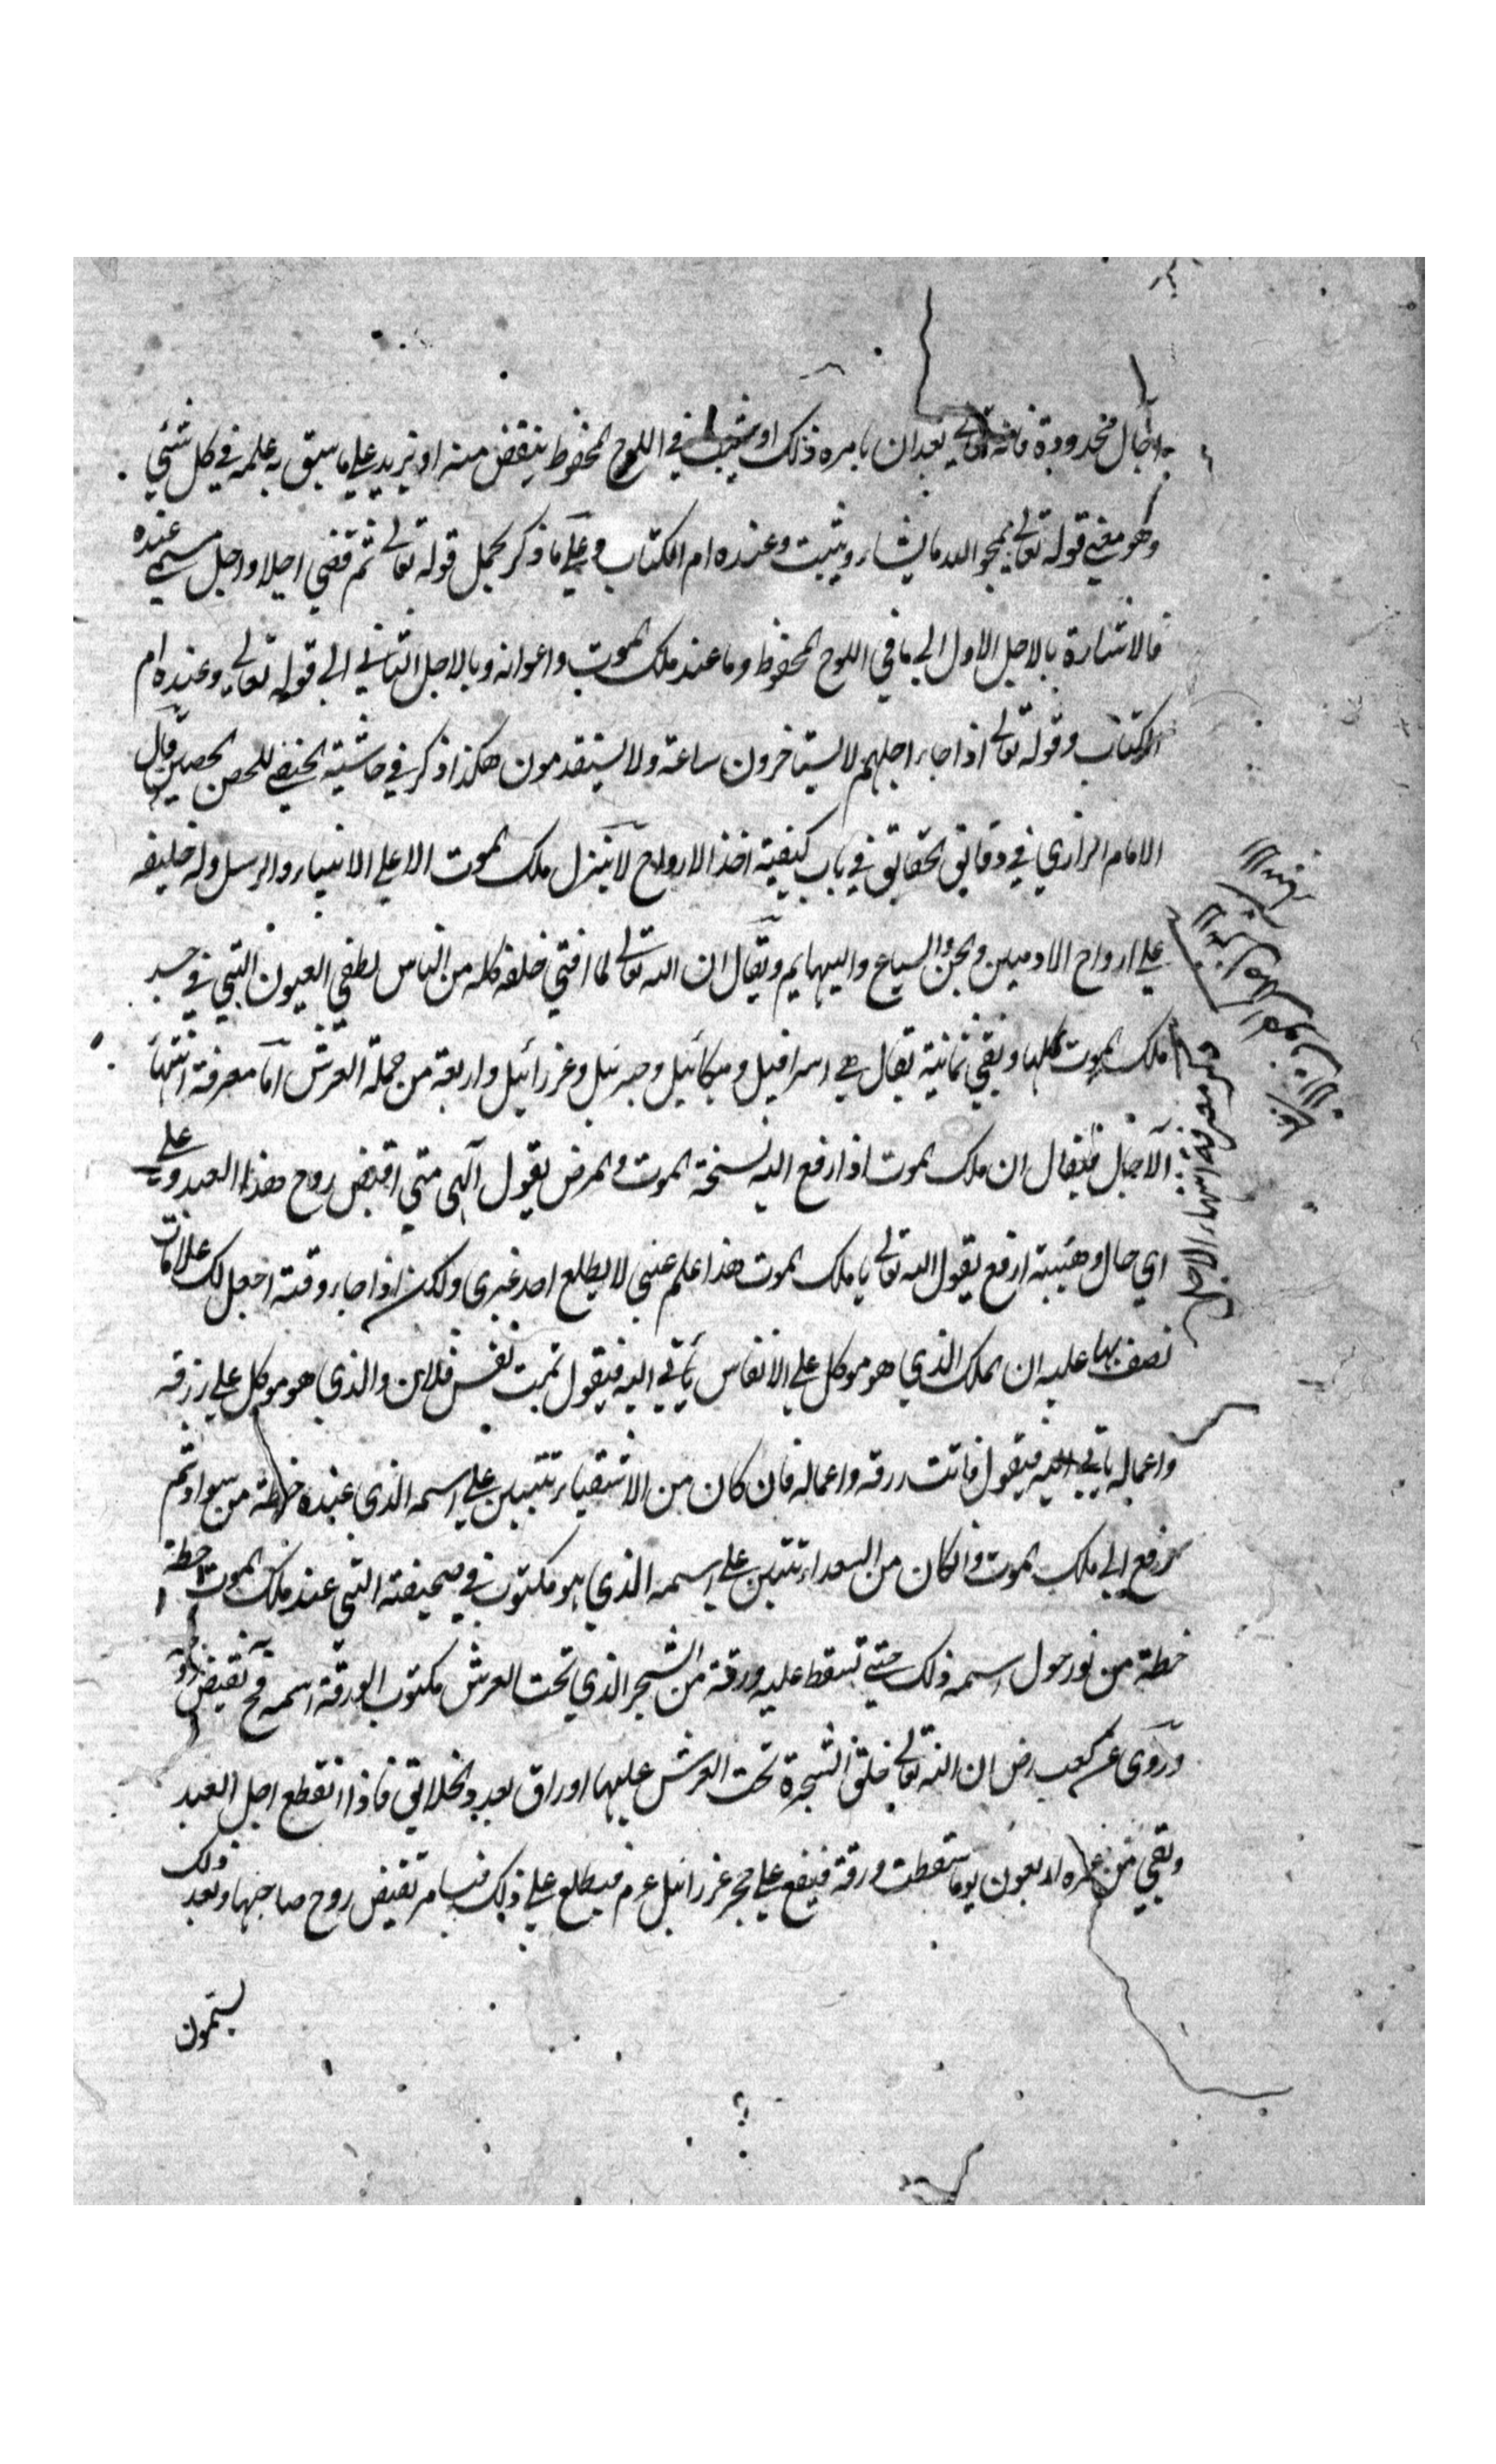 به اجال محدودة فانه تعالى بعد ان يامره ذلك او يثبت في اللوح المحفوظ ينقض منه او يزيد على ما سبق به علمه في كل شئ
وهو معنى قوله تعالى يمحو الله ما يشاء ويثبت وعنده ام الكتاب وعلى ما ذكر يحمل قوله تعالى ثم قضى اجلا واجل مسمى عنده
فالاشارة بالاجل الاول الى ما في اللوح المحفوظ وما عند ملك الموت واعوانه وبالاجل الثاني الى قوله تعالى وعنده ام
الكتاب وقوله تعالى اذا جاء اجلهم لا يستاخرون ساعة ولا يستقدمون هكذا ذكر في حاشية الحنفي للحصن الحصين قال
الامام الرازي في دقايق الحقايق في باب كيفية اخذ الارواح لا ينزل ملك الموت الا على الانبياء والرسل وله خليفه
على ارواح الادميين والجن والسباع والبهايم ويقال ان الله تعالى لما افنى خلقه كله من الناس لطفى العيون التي في جسد
ملك الموت كلها وبقى ثمانية يقال هى اسرافيل وميكائيل وجبرئيل وعزرائيل واربعة من حملة العرش اما معرفة انتهاء
الآجال فيقال ان ملك الموت اذا رفع اليه نسخة الموت والمرض يقول آلهى متى اقبض روح هذا العبد وعلى
اي حال وهيئة ارفع يقول الله تعالى يا ملك الموت هذا علم غيبي لا يطلع احد غيرى ولكن اذا جاء وقته اجعل لك علامات
نصف بها عليه ان الملك الذي هو موكل على الانفاس ياتي اليه فيقول تمت نفس فلان والذي هو موكل على رزقه
واعماله ياتي اليه فيقول فاتت رزقه واعماله فان كان من الاشقياء تتبين على اسمه الذي عنده خطة من سواد ثم
رفع الى ملك الموت وان كان من السعداء تتبين على اسمه الذي هو مكتوب في صحيفته التي عند ملك الموت خطة
خطة من نور حول اسمه ذلك حتى تسقط عليه ورقة من الشجر الذي تحت العرش مكتوب الورقة اسمه فح تقبض روحه
وروى عن كعب رض ان الله تعالى خلق الشجرة تحت العرش عليها اوراق بعدد الخلائق فاذا انقطع اجل العبد
وبقى من عمره اربعون يوما سقطت ورقة فيقع على حجر عزرائيل عم فيطلع على ذلك فيامر تقبض روح صاحبها وبعد ذلك
يسمون
معرفة انتهاء الاجال